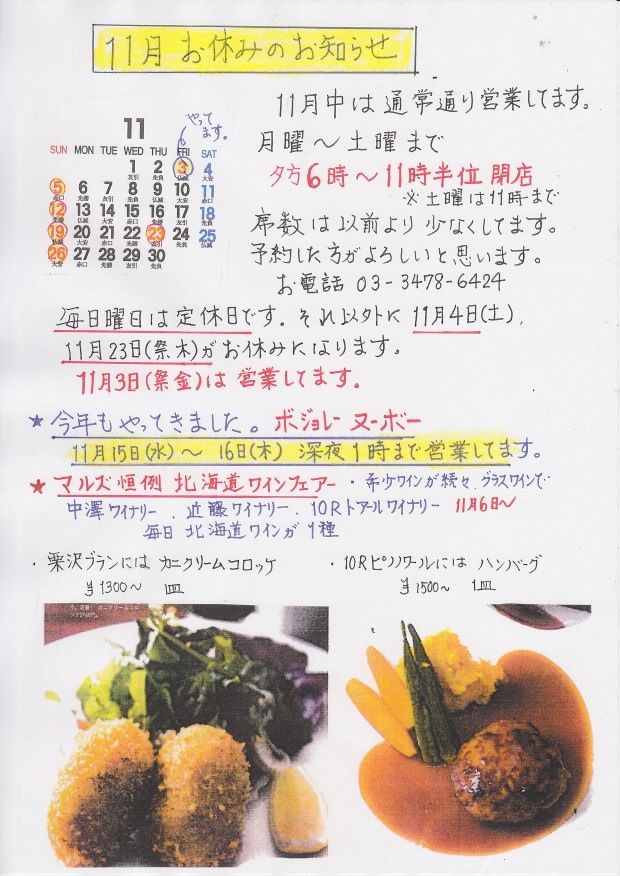 11月 お休みのお知らせ
やって
ます。
11
SUN MON TUE WED THU FRI SAT
1 2 3 4
友引 先負 仏滅 大安
5 6 7 8 9 10 11
赤口 先勝 友引 先負 仏滅 大安 赤口
12 13 14 15 16 17 18
先勝 友引 先負 仏滅 大安 赤口 先勝
19 20 21 22 23 24 25
仏滅 大安 赤口 先勝 友引 先負 仏滅
26 27 28 29 30
大安 赤口 先勝 友引 先負
11月中は通常通り営業してます。
月曜〜土曜まで
夕方6時〜11時半位 閉店
※土曜は11時まで
席数は以前より少なくしてます。
予約した方がよろしいと思います。
お電話 03-3478-6424
毎日曜日は定休日です。それ以外に 11月4日(土)、
11月23日(祭木)がお休みになります。
11月3日(祭金)は営業してます。
★ 今年もやってきました。ボジョレー ヌーボー
11月15日(水)〜16日(木) 深夜1時まで営業してます。
★ マルズ恒例 北海道ワインフェアー・希少ワインが続々、グラスワインで
中澤ワイナリー、近藤ワイナリー、10Rトアールワイナリー 11月6日〜
毎日北海道ワインが1種
・栗沢ブランには カニクリームコロッケ
¥1300〜 1皿
・10Rピノノワールには ハンバーグ
¥1500〜 1皿
カニクリームコロ